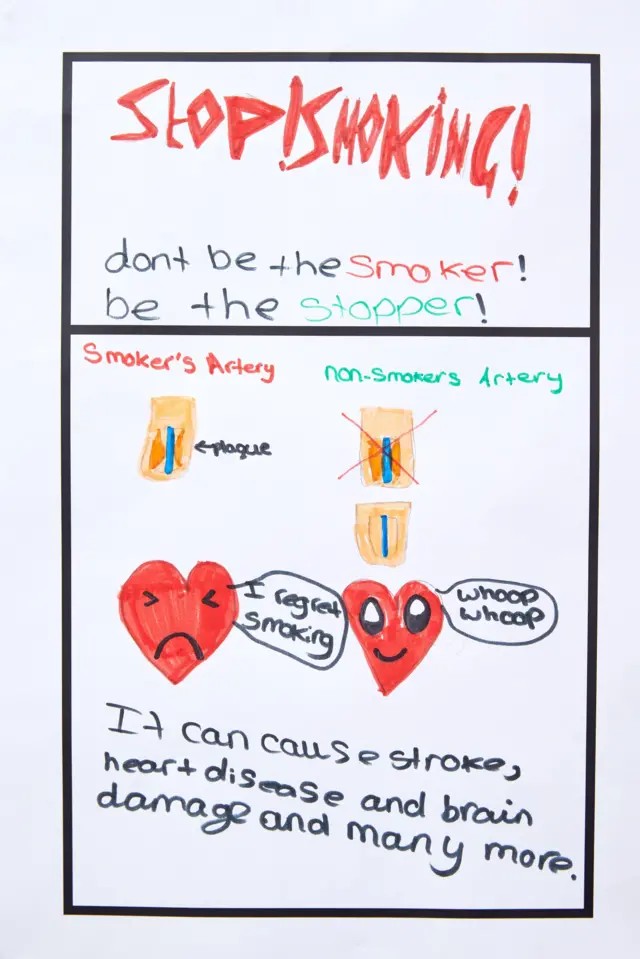 STOP! SMOKING!
dont be the Smoker!
be the Stopper!
Smoker's Artery
non-Smokers Artery
←plaque
I regret
smoking
whoop
whoop
It can cause stroke,
heart disease and brain
damage and many more.